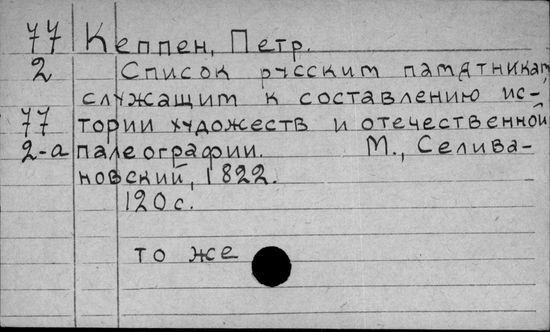 77 Кеппен, Петр.
2 Список русским памятникам
служащим к составлению ис-
77 тории художеств и отечественной
2-а палеографии. М., Селива-
новский, 1822.
120 с.
то же